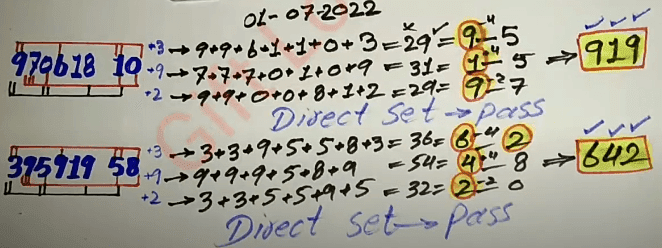 01-07-2022
970618 10 +3 → 9+9+6+1+1+0+3 = 29 = 9 -4 5
+9 → 7+7+7+0+1+0+9 = 31 = 1 +4 5 ⇒ 919
+2 → 9+9+0+0+8+1+2 = 29 = 9 -2 7
Direct Set → pass
395919 58 +3 → 3+3+9+5+5+8+3 = 36 = 6 -4 2
+9 → 9+9+9+5+8+9 = 54 = 4 +4 8 ⇒ 642
+2 → 3+3+5+5+9+5 = 32 = 2 -2 0
Direct Set → pass